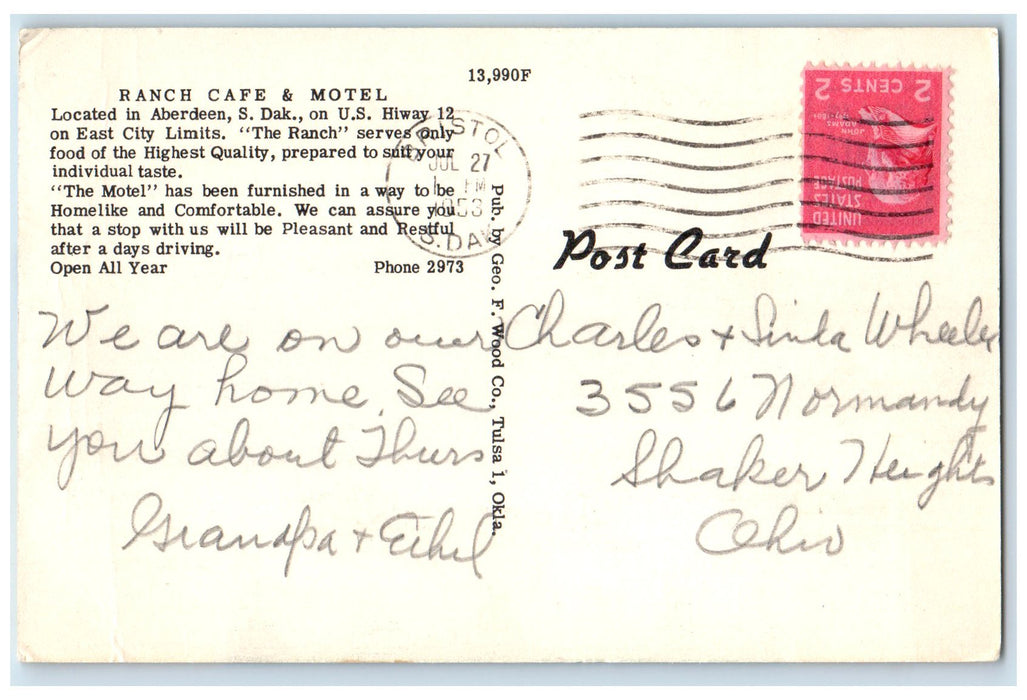 13,990F
RANCH CAFE & MOTEL
Located in Aberdeen, S. Dak., on U.S. Hiway 12
on East City Limits. "The Ranch" serves only
food of the Highest Quality, prepared to suit your
individual taste.
"The Motel" has been furnished in a way to be
Homelike and Comfortable. We can assure you
that a stop with us will be Pleasant and Restful
after a days driving.
Open All Year Phone 2973
BRISTOL
JUL 27
PM
1953
S. DAK
Pub. by Geo. F. Wood Co., Tulsa 1, Okla.
We are on our
way home. See
you about Thurs
Grandpa + Ethel
UNITED
STATES
POSTAGE
JOHN
ADAMS
2 CENTS 2
Post Card
Charles + Linda Wheeler
3556 Normandy
Shaker Heights
Ohio